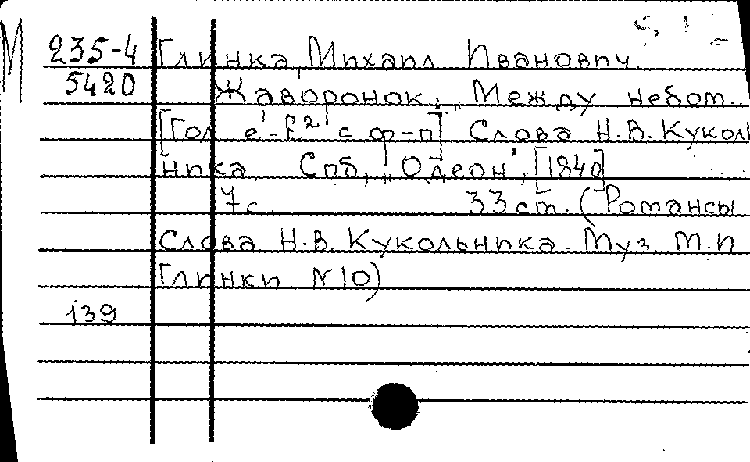 М 235-4 Глинка, Михаил Иванович.
5420 Жаворонок. „Между небом.
[Гол. e'-f² с ф-п] Слова Н.В. Куколь
ника. Спб, „Одеон", [1840]
7с. 33 ст. (Романсы.
Слова Н.В. Кукольника. Муз. М.И.
Глинки №10)
139